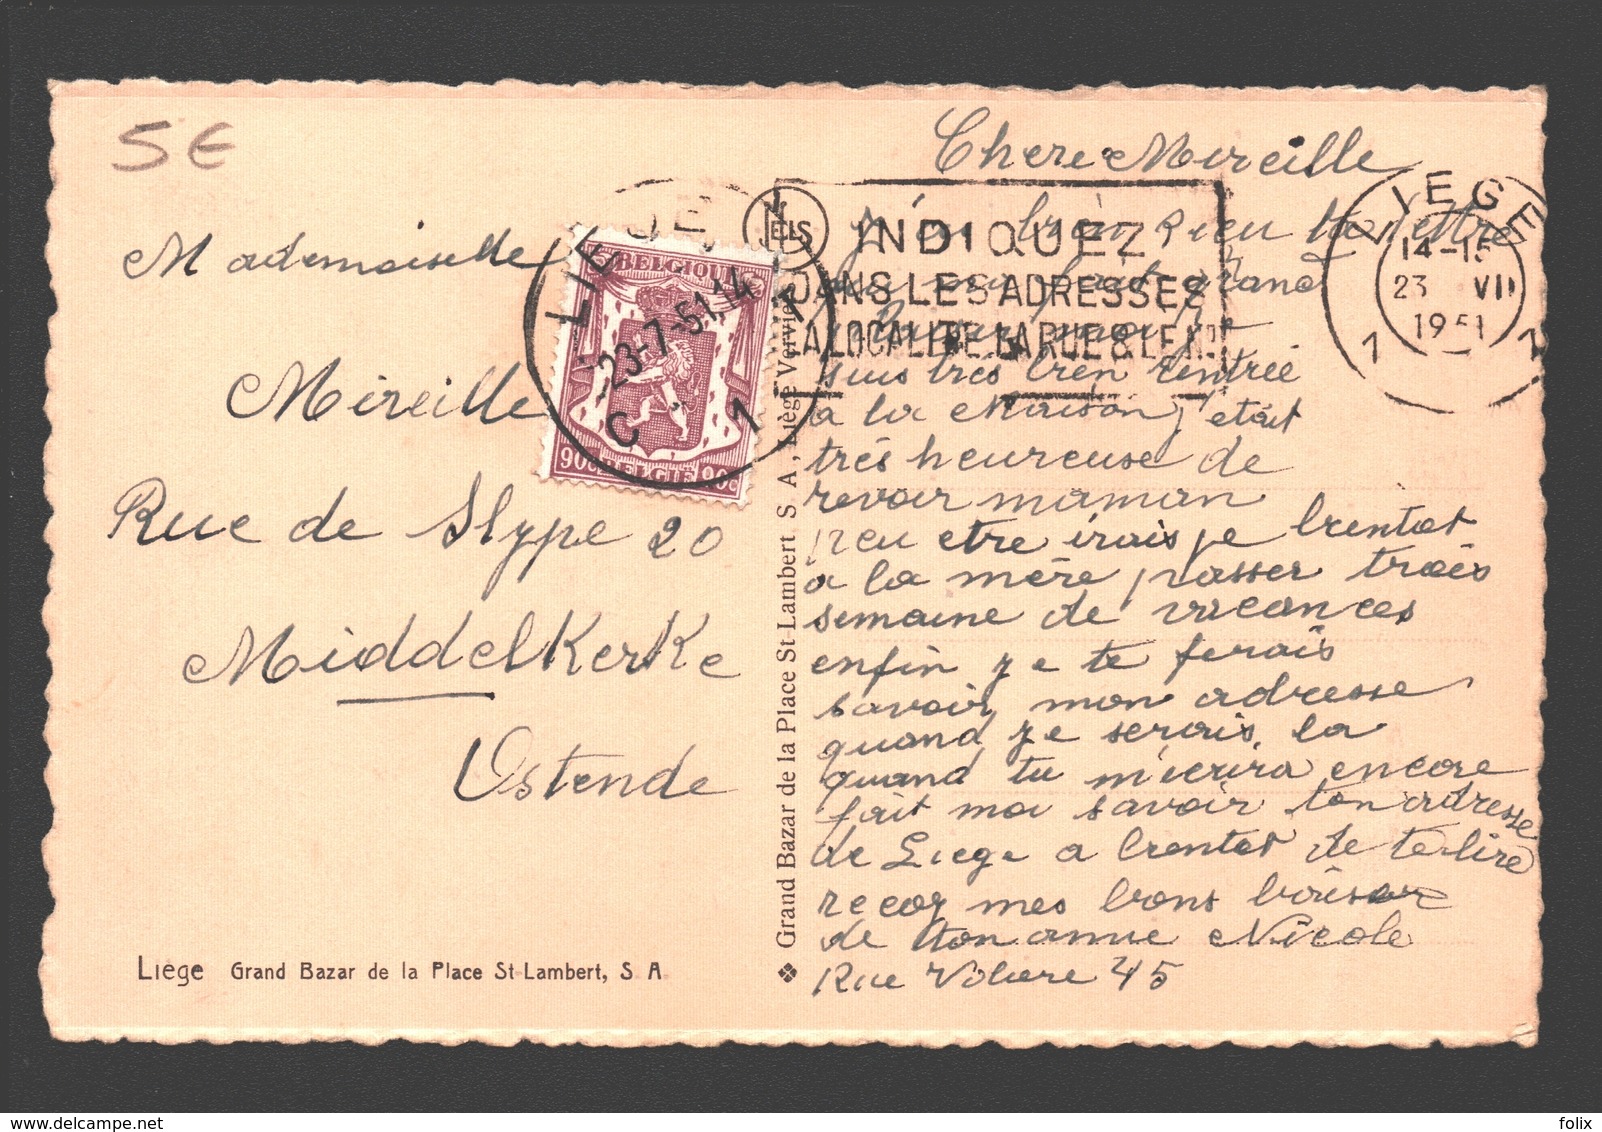 5€
Mademoiselle
Mireille
Rue de Slype 20
Middelkerke
Ostende
BELGIQUE
90c BELGIË 90c
LIEGE 1
-23-7-51.14
C 1
NELS
INDIQUEZ
DANS LES ADRESSES
LA LOCALITE LA RUE & LE No
LIEGE
14-15
23 VII
1951
1 1
Chere Mireille
J'ai bien Recu ta lettre
grand
suis très bien rentrée
a la Maison, etait
très heureuse de
revoir maman
peu etre irais je bientot
a la mère passer trois
semaine de vacances
enfin je te ferais
savoir mon adresse
quand je serais la
quand tu m'ecrira encore
fait moi savoir ton adresse
de Liege a bientot de te lire
recoy mes bons baiser
de ton amie Nicole
Rue Volière 45
Liège Grand Bazar de la Place St-Lambert, S A
❖ Grand Bazar de la Place St-Lambert, S. A., Liège Verviers
folix